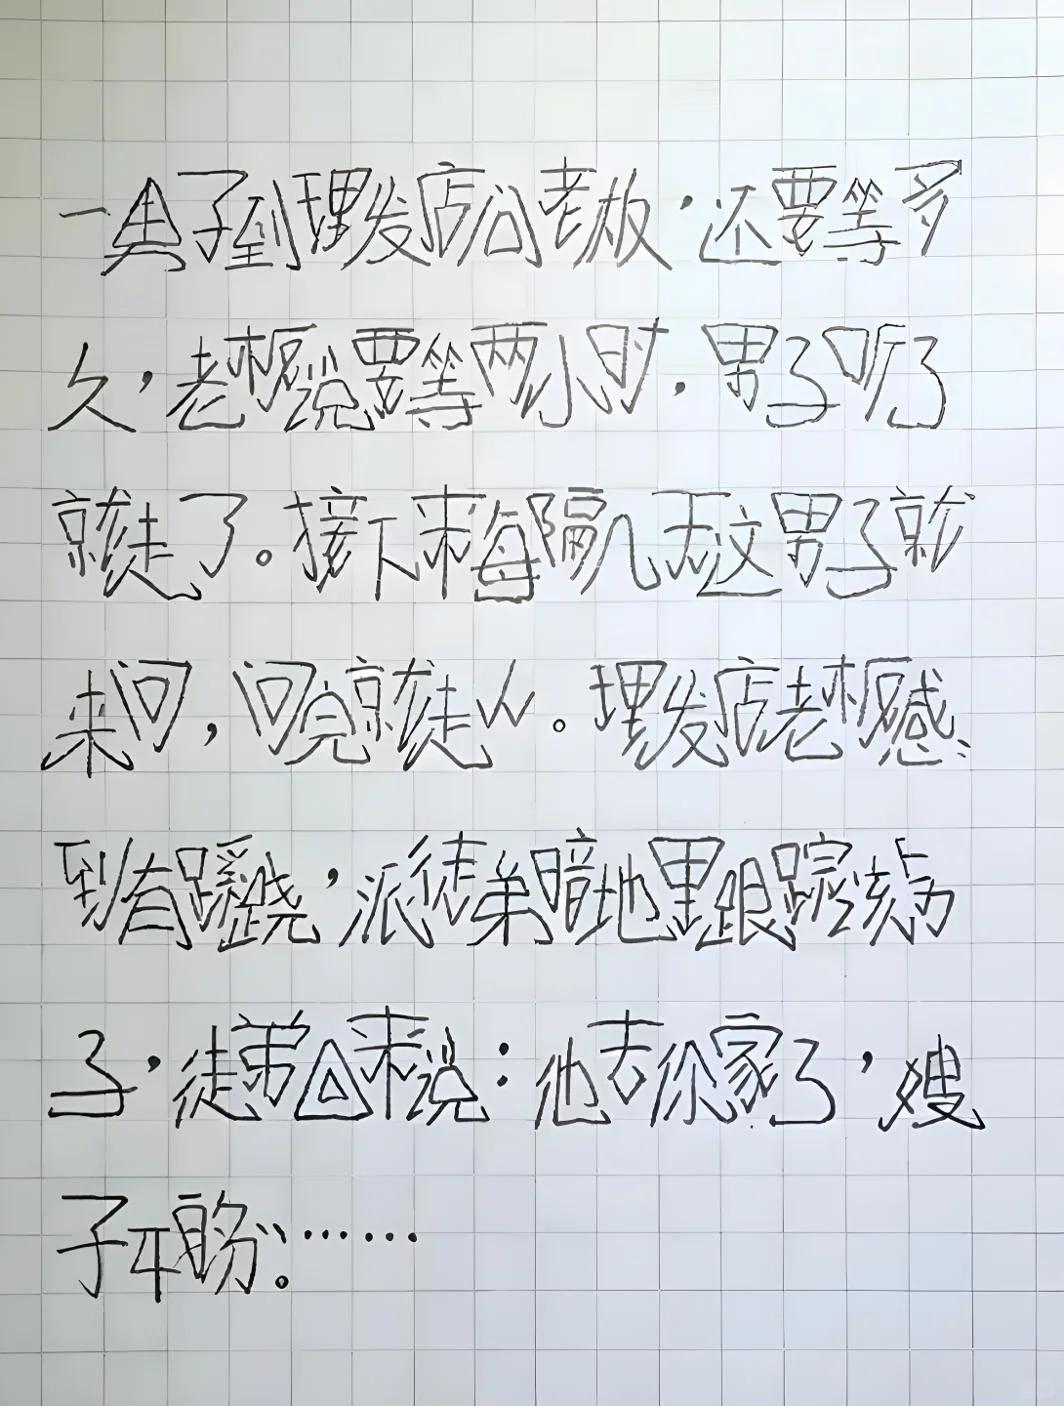 一男子到理发店问老板，还要等多
久，老板说要等两小时，男子听了
就走了。接下来每隔几天这男子就
来问，问完就走人。理发店老板感
到有蹊跷，派徒弟暗地里跟踪该男
子，徒弟回来说：他去你家了，嫂
子